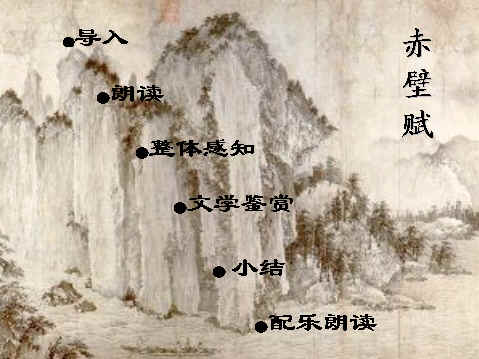 赤壁赋
●导入
●朗读
●整体感知
●文学鉴赏
●小结
●配乐朗读